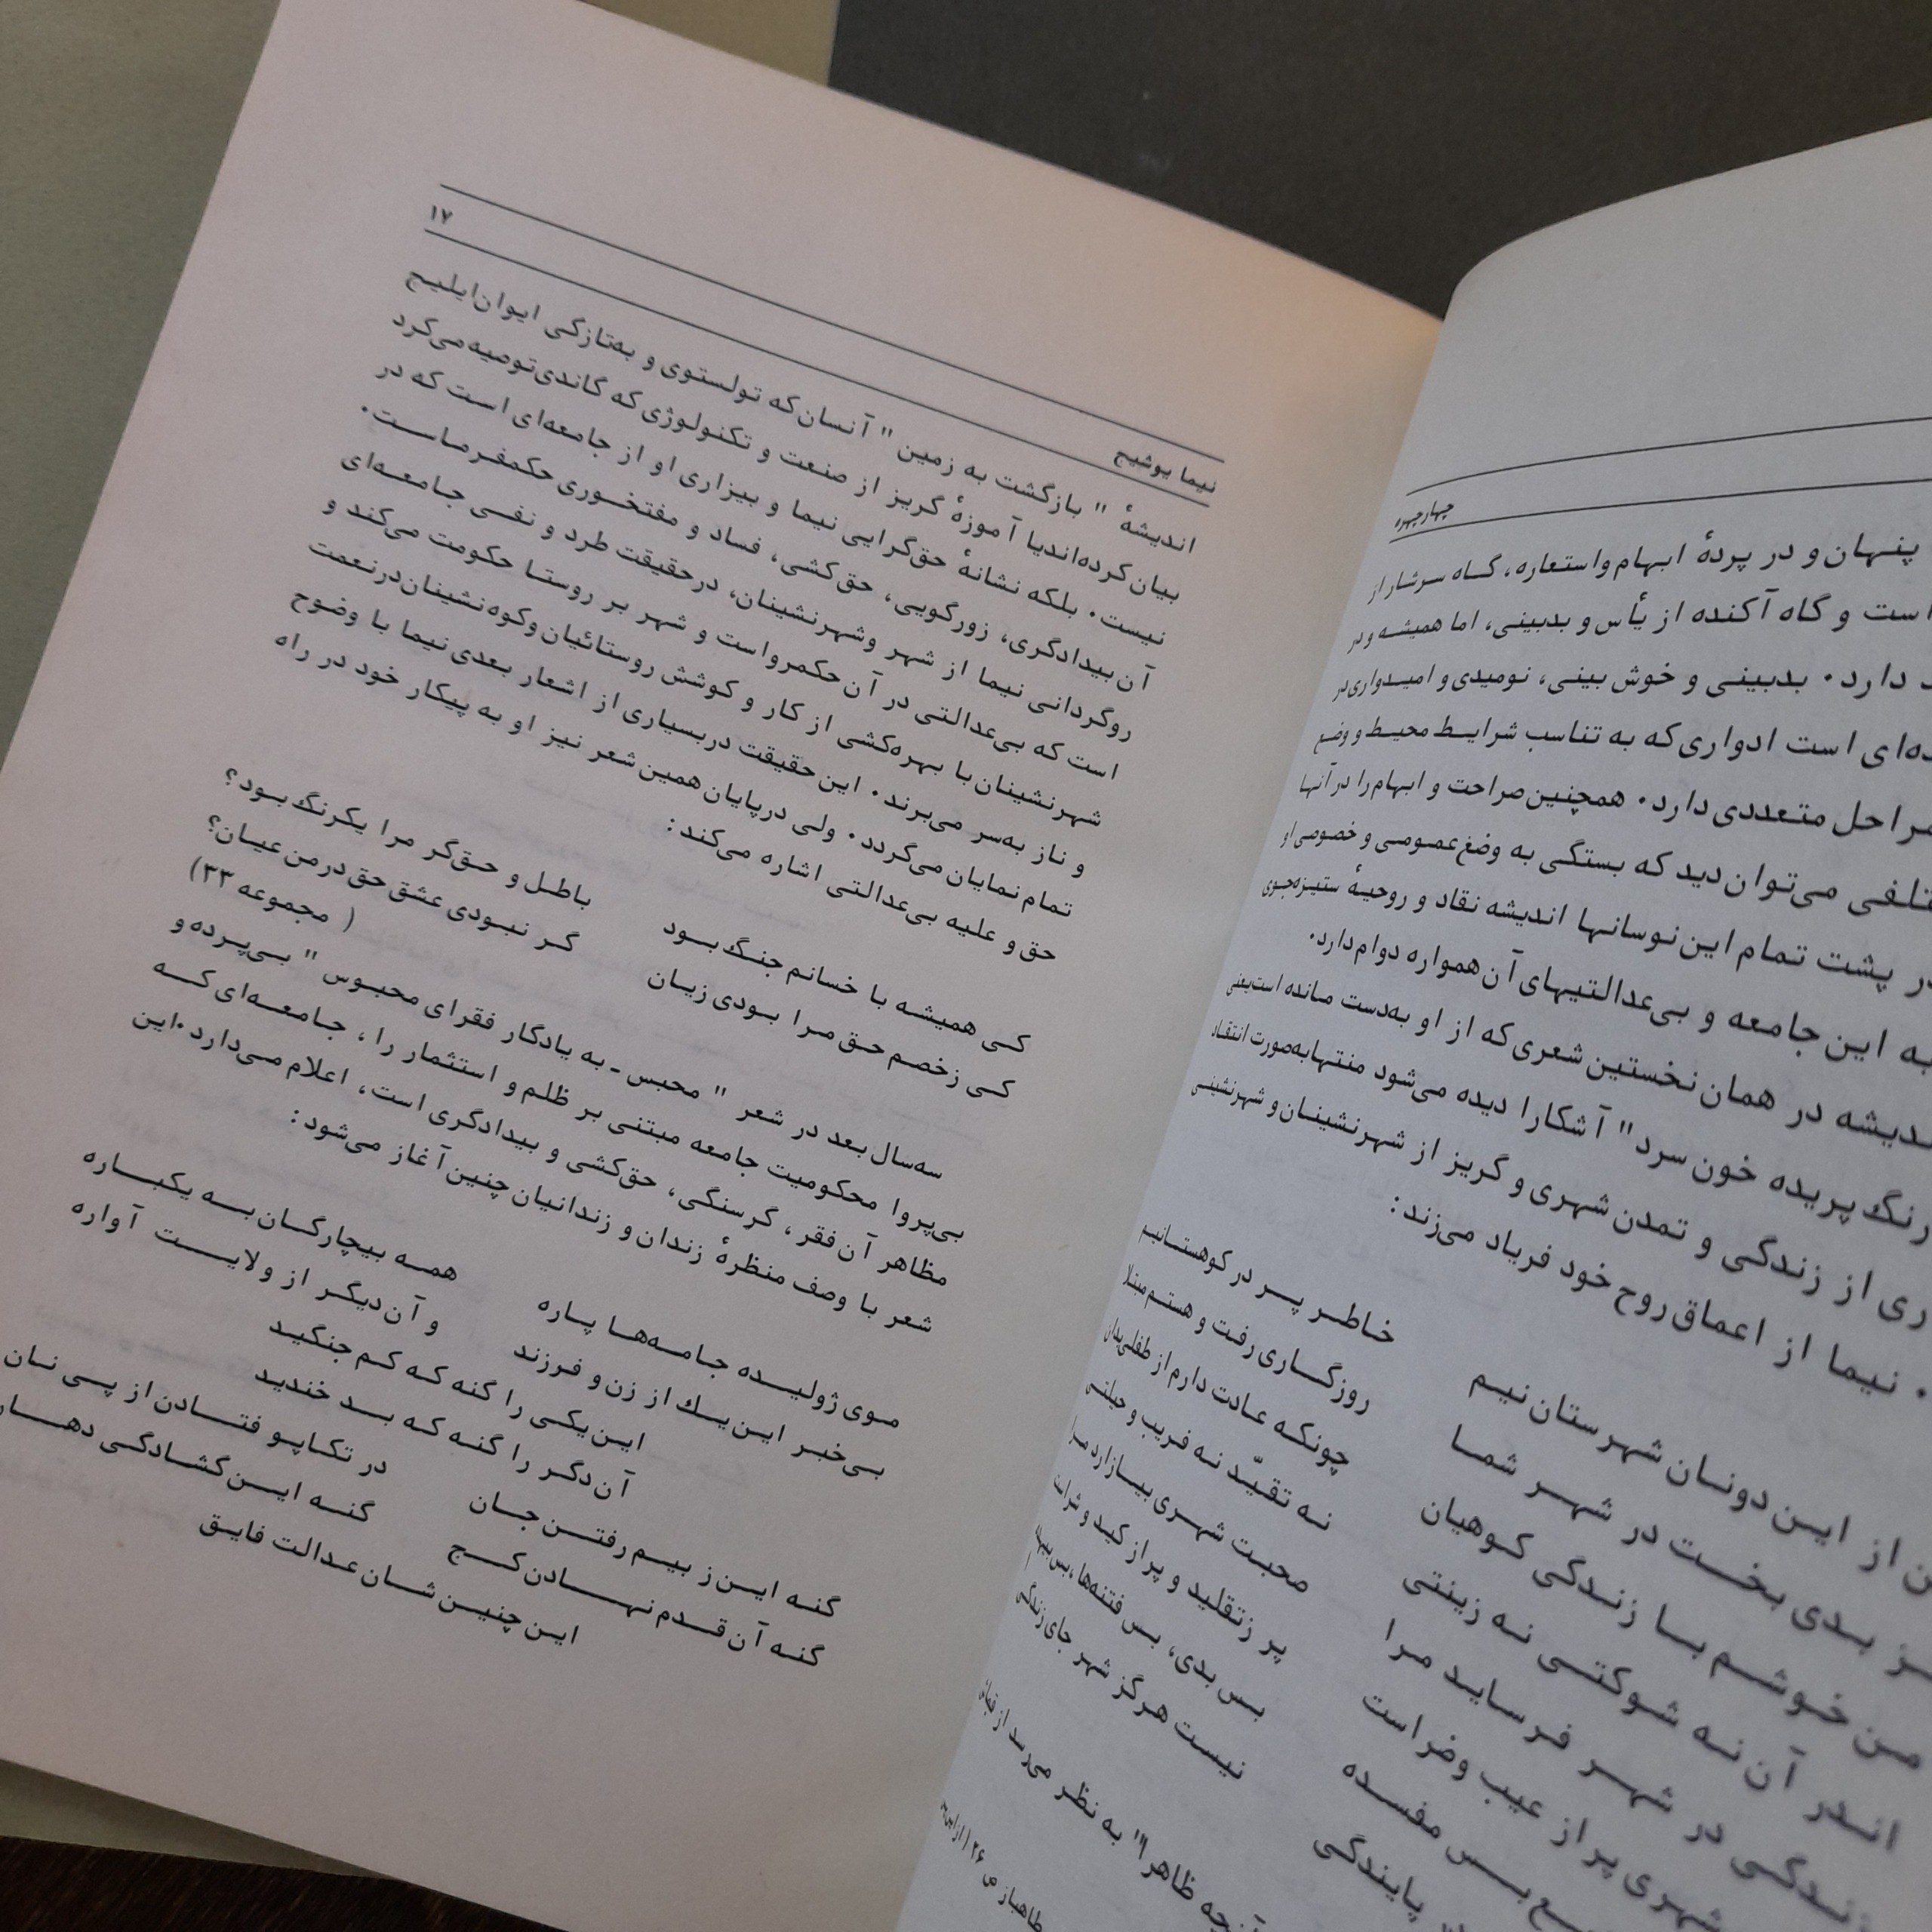 چهارچهره
پنهان و در پردهٔ ابهام واستعاره، گاه سرشار از
است و گاه آکنده از یأس و بدبینی، اما همیشه و در
دارد. بدبینی و خوش بینی، نومیدی و امیدواری در
است ادواری که به تناسب شرایط محیط و وضع
مراحل متعددی دارد. همچنین صراحت و ابهام را در آنها
می‌توان دید که بستگی به وضع عمومی و خصوصی او
در پشت تمام این نوسانها اندیشه نقاد و روحیهٔ ستیزه‌جوی
به این جامعه و بی‌عدالتیهای آن همواره دوام دارد.
در همان نخستین شعری که از او به‌دست مانده است یعنی
رنگ پریده خون سرد" آشکارا دیده می‌شود منتها به‌صورت انتقاد
از زندگی و تمدن شهری و گریز از شهرنشینان و شهرنشینی
. نیما از اعماق روح خود فریاد می‌زند:
از این دونان شهرستان نیم خاطر پر در کوهستانیم
بدی بخت در شهر شما روزگاری رفت و هستم مبتلا
من خوشم با زندگی کوهیان چونکه عادت دارم از طفلی بدان
اندر آن نه شوکتی نه زینتی نه تقیّد نه فریب و حیلتی
زندگی در شهر فرساید مرا محبت شهری بیازارد مرا
شهری پر از عیب وضر است پر زتقلید و پر از کید و شر است
بس مفسده بس بدی، بس فتنه‌ها، بس بیهده
پایندگی نیست هرگز شهر جای زندگی
ظاهرا" به نظر می‌رسد از
طاهباز ص ۲۶
نیما یوشیج ۱۷
اندیشهٔ " بازگشت به زمین " آنسان که تولستوی و به‌تازگی ایوان ایلیچ
بیان کرده‌اند یا آموزهٔ گریز از صنعت و تکنولوژی که گاندی توصیه می‌کرد
نیست. بلکه نشانهٔ حق‌گرایی نیما و بیزاری او از جامعه‌ای است که در
آن بیدادگری، زورگویی، حق‌کشی، فساد و مفتخوری حکمفرماست.
روگردانی نیما از شهر وشهرنشینان، درحقیقت طرد و نفی جامعه‌ای
است که بی‌عدالتی در آن حکمرواست و شهر بر روستا حکومت می‌کند و
شهرنشینان با بهره‌کشی از کار و کوشش روستائیان وکوه‌نشینان درنعمت
و ناز به‌سر می‌برند. این حقیقت دربسیاری از اشعار بعدی نیما با وضوح
تمام نمایان می‌گردد. ولی درپایان همین شعر نیز او به پیکار خود در راه
حق و علیه بی‌عدالتی اشاره می‌کند:
کی همیشه با خسانم جنگ بود باطل و حق‌گر مرا یکرنگ بود؟
کی زخصم حق مرا بودی زیان گر نبودی عشق حق درمن عیان؟
( مجموعه ۳۳)
سه‌سال بعد در شعر " محبس ـ به یادگار فقرای محبوس " بی‌پرده و
بی‌پروا محکومیت جامعه مبتنی بر ظلم و استثمار را ، جامعه‌ای که
مظاهر آن فقر ، گرسنگی، حق‌کشی و بیدادگری است، اعلام می‌دارد. این
شعر با وصف منظرهٔ زندان و زندانیان چنین آغاز می‌شود:
موی ژولیده جامه‌ها پاره همه بیچارگان به یکباره
بی‌خبر این یك از زن و فرزند و آن دیگر از ولایت آواره
این یکی را گنه که کم جنگید
آن دگر را گنه که بد خندید
گنه این ز بیم رفتن جان در تکاپو فتادن از پی نان
گنه آن قدم نهادن کج گنه این گشادگی دهان
این چنین شان عدالت فایق